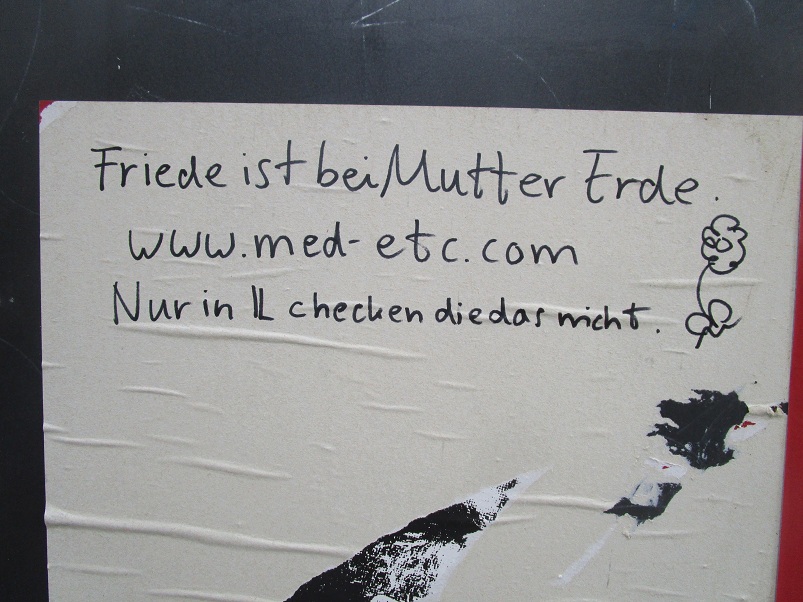 Friede ist bei Mutter Erde.
www.med-etc.com
Nur in IL checken die das nicht.